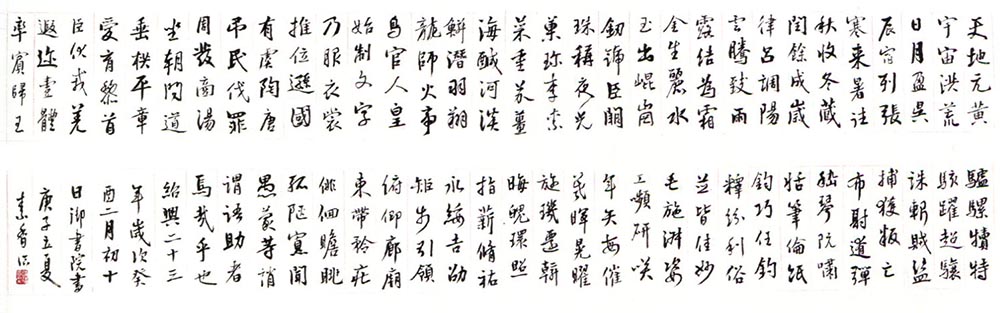 天地元黄
宇宙洪荒
日月盈昃
辰宿列張
寒来暑往
秋收冬藏
閏餘成歲
律呂調陽
雲騰致雨
露結為霜
金生麗水
玉出崐崗
劍號巨闕
珠稱夜光
菓珍李柰
菜重芥薑
海鹹河淡
鱗潛羽翔
龍師火帝
鳥官人皇
始制文字
乃服衣裳
推位遜國
有虞陶唐
吊民伐罪
周發商湯
坐朝問道
垂拱平章
愛育黎首
臣伏戎羌
遐迩壹體
率賓歸王
驢騾犢特
駭躍超驤
誅斬賊盜
捕獲叛亡
布射遼彈
嵇琴阮嘯
恬筆倫紙
鈞巧任釣
釋紛利俗
並皆佳妙
毛施淑姿
工顰研咲
年矢每催
羲暉晃曜
旋璣遷斡
晦魄環照
指薪脩祐
永綏吉劭
矩步引領
俯仰廊廟
束帶矜莊
俳佪瞻眺
孤陋寡聞
愚蒙等誚
謂語助者
焉哉乎也
紹興二十三
年歲次癸
酉二月初十
日御書院書
庚子五夏
素香